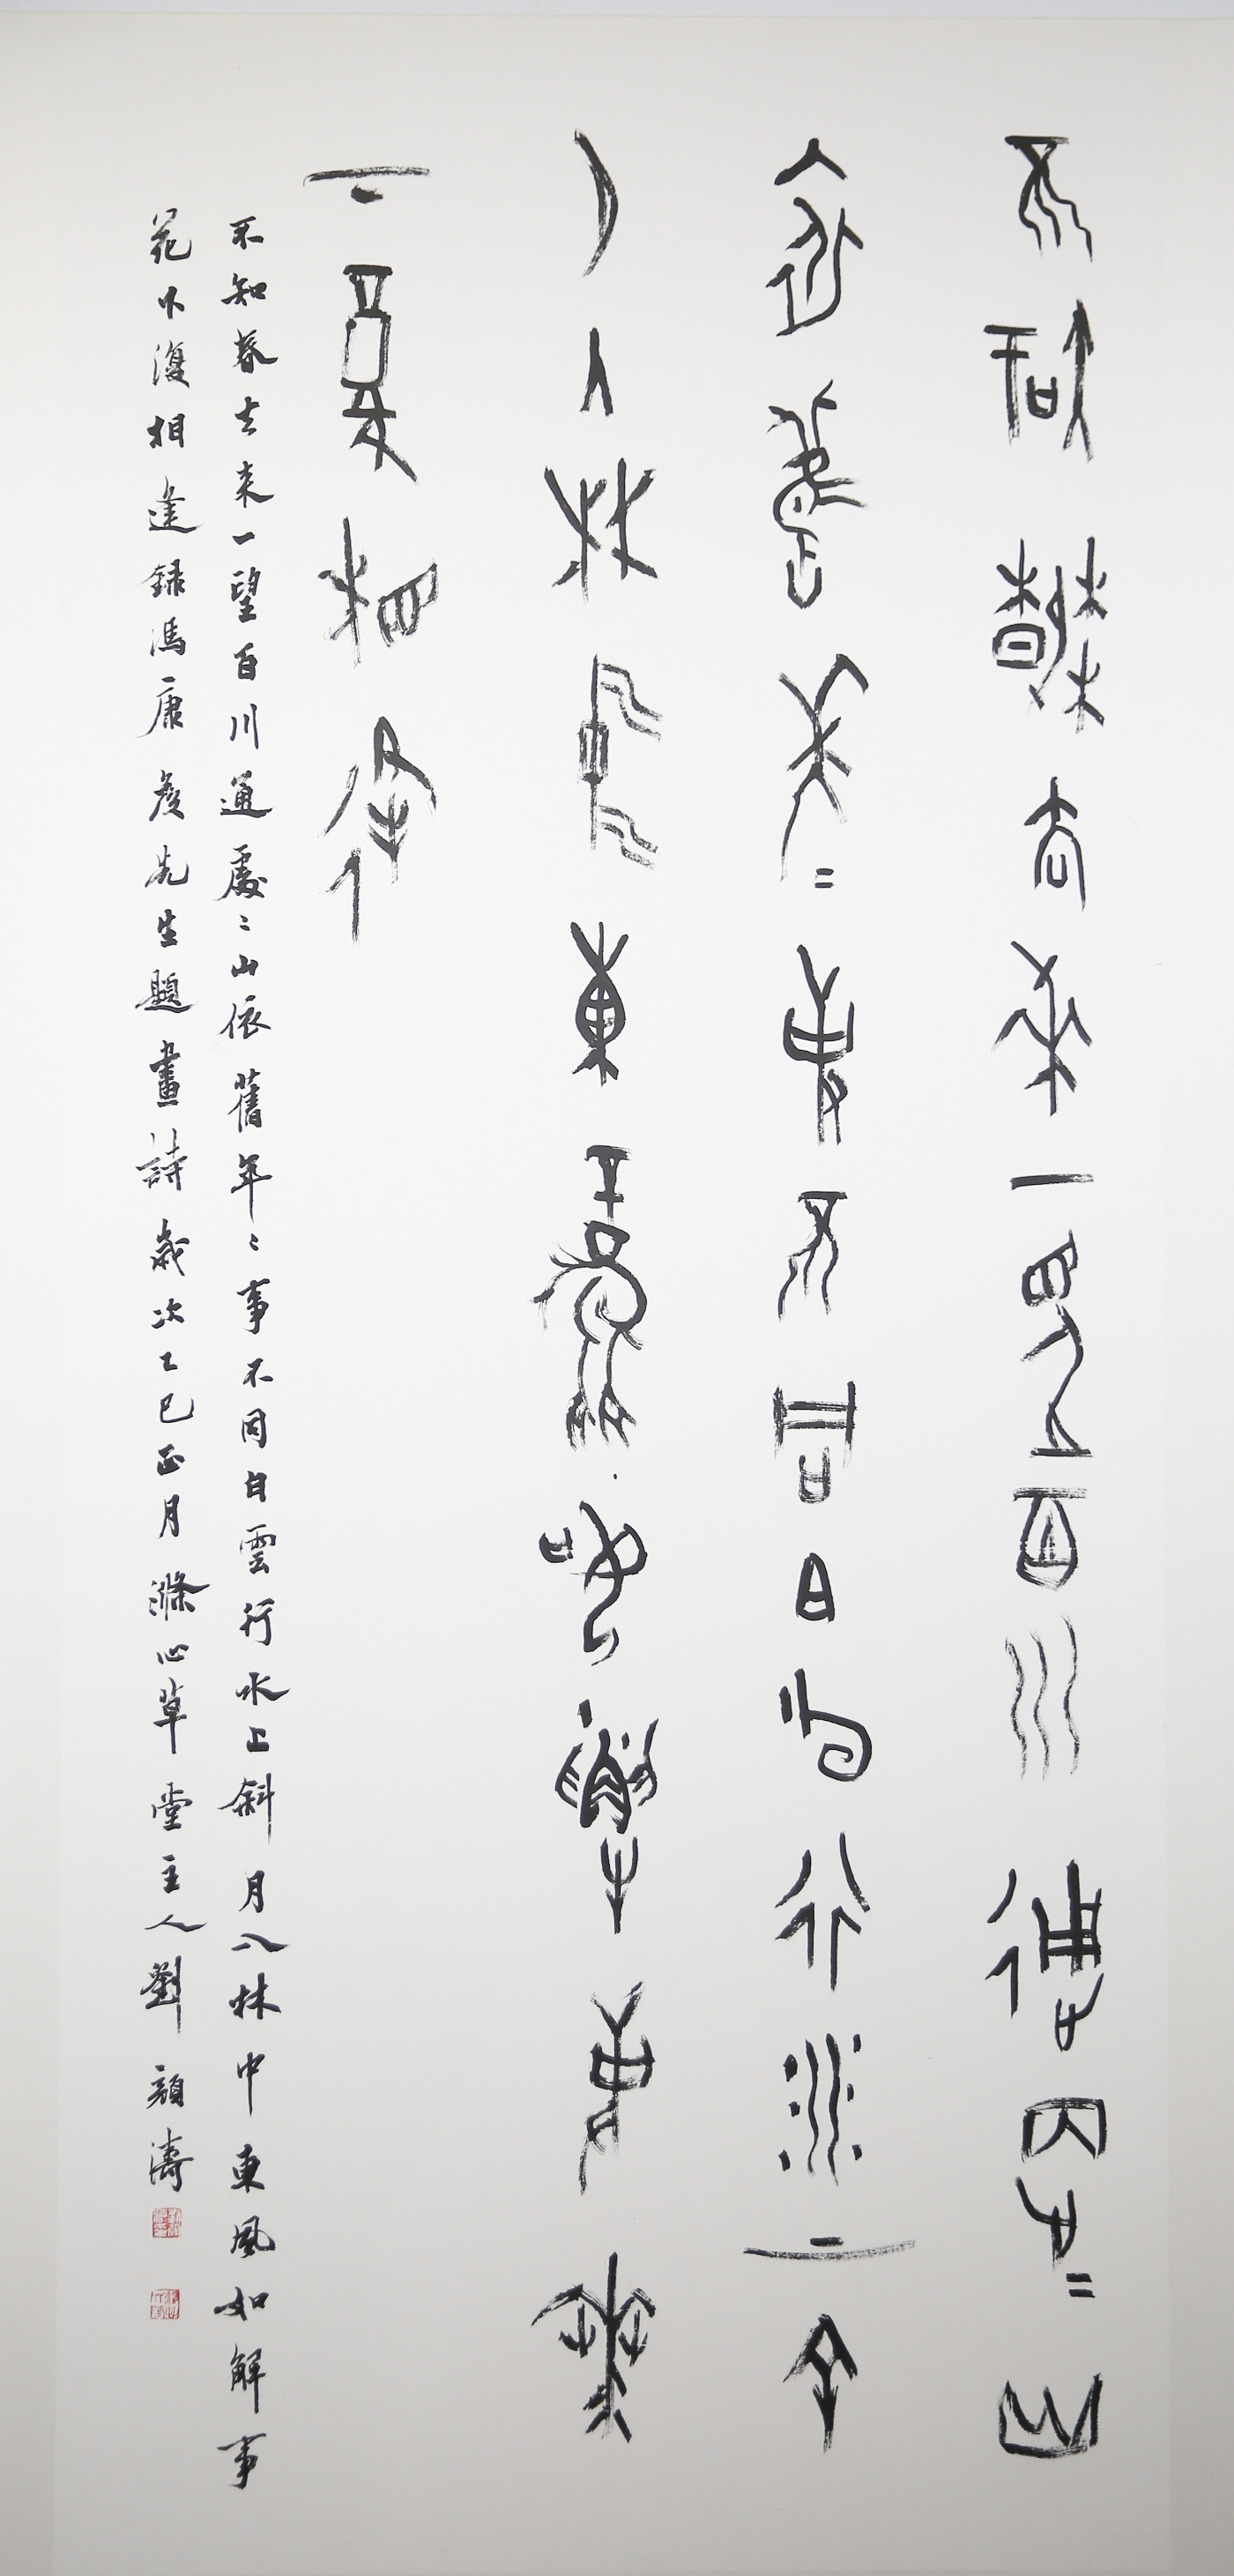 不知春去来一望百川通處〻山
依舊年〻事不同白雲行水上斜
月入林中東風如解事花
下復相逢
不知春去来一望百川通處〻山依舊年〻事不同白雲行水上斜月入林中東風如解事
花下復相逢録馮康矦先生題畫詩歲次乙巳正月滌心草堂主人劉顏濤